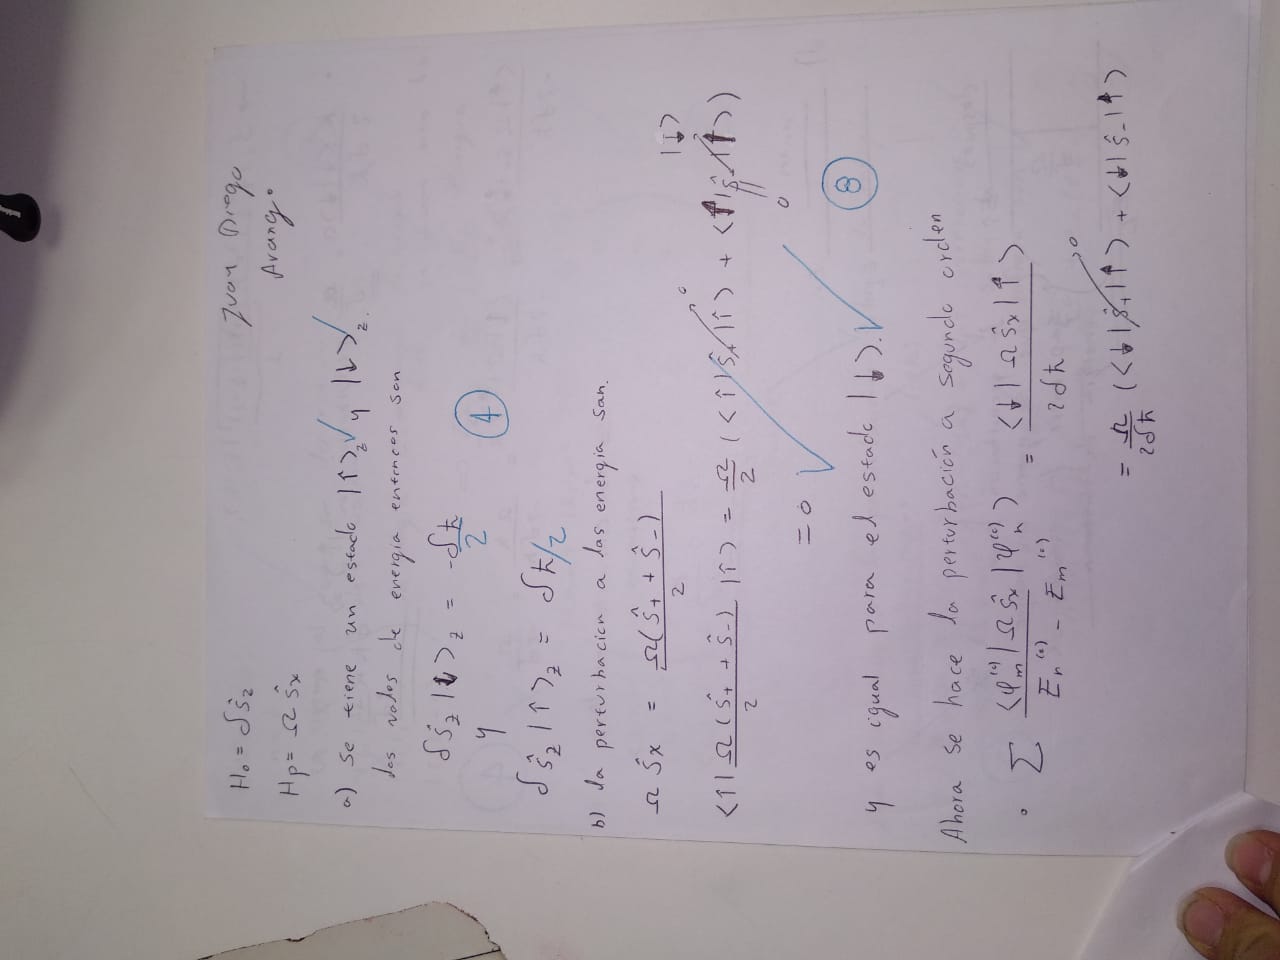 Juan Diego
Arango
H₀ = δŜz
Hp = Ω Ŝx
a) Se tiene un estado |↑>z y |↓>z.
los de energia entonces son
δŜz |↓>z = -δħ/2
y
δŜz |↑>z = δħ/2
4
b) la perturbación a las energia son.
Ω Ŝx = Ω(Ŝ+ + Ŝ-)/2
|↓>
<↑| Ω(Ŝ+ + Ŝ-)/2 |↑> = Ω/2 (<↑|Ŝ+|↑> + <↑|Ŝ-|↑>)
0
0
= 0
y es igual para el estado |↓>.
8
Ahora se hace la perturbación a segundo orden
∑ <φm⁽⁰⁾| Ω Ŝx |φn⁽⁰⁾> / En⁽⁰⁾ - Em⁽⁰⁾ = <↓| Ω Ŝx |↑> / 2δħ
= Ω/2δħ (<↓|Ŝ+|↑> + <↓|Ŝ-|↑>
0